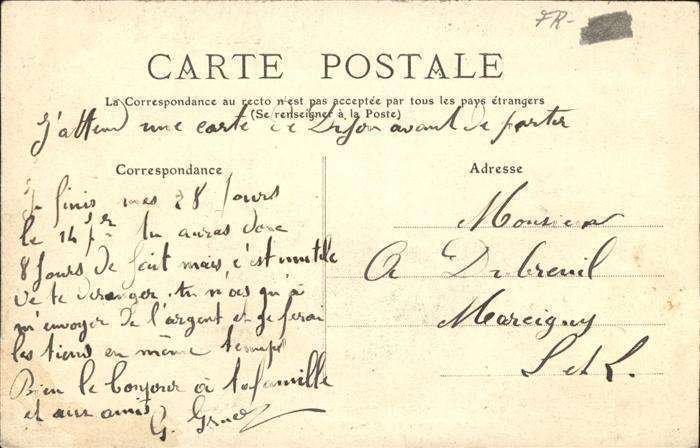 FR-
CARTE POSTALE
La Correspondance au recto n'est pas acceptée par tous les pays étrangers
(Se renseigner à la Poste)
J'attend une carte de Dijon avant de partir
Correspondance
Je finis mes 28 Jours
le 14 tu auras donc
8 Jours de fait mais c'est inutile
de te deranger tu n'as qu'à
m'envoyer de l'argent et je ferai
les tiens en même temps
Bien le bonjour à ta famille
et aux amis
G.
Adresse
Monsieur
A Dubreuil
Marcigny
S et L.